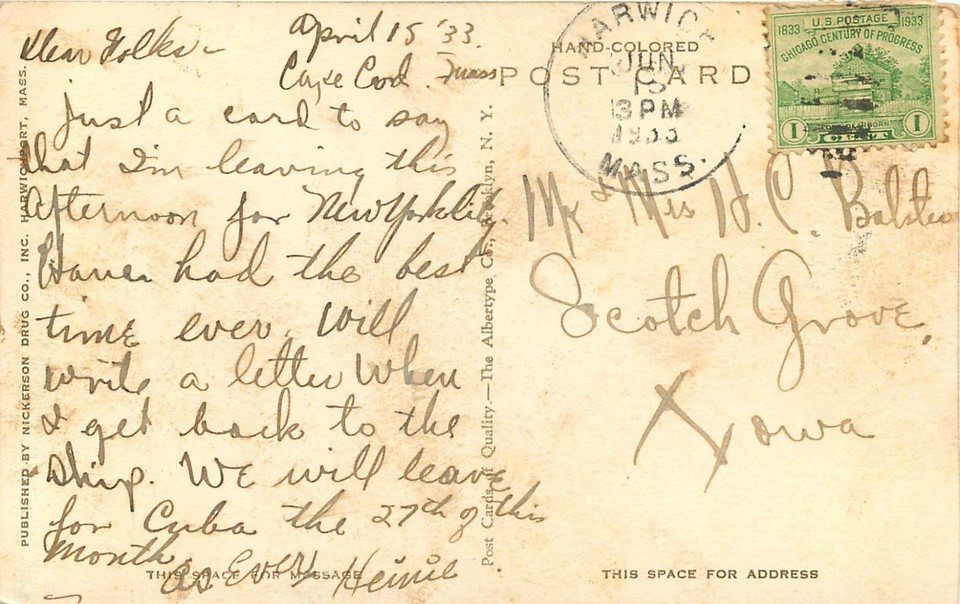 April 15 '33.
Cape Cod. Mass
Dear Folks -
Just a card to say
that I'm leaving this
afternoon for New York City.
Haven had the best
time ever. Will
write a letter when
I get back to the
ship. We will leave
for Cuba the 27th of this
month.
As Ever Heinie
THIS SPACE FOR MESSAGE
PUBLISHED BY NICKERSON DRUG CO., INC. HARWICHPORT, MASS.
Post Cards of Quality.—The Albertype Co., Brooklyn, N. Y.
HAND-COLORED
POST CARD
HARWICH
JUN
15
3 PM
1933
MASS.
1833 U.S. POSTAGE 1933
CHICAGO CENTURY OF PROGRESS
1 CENT 1
Mr & Mrs H. C.
Scotch Grove,
Iowa
THIS SPACE FOR ADDRESS